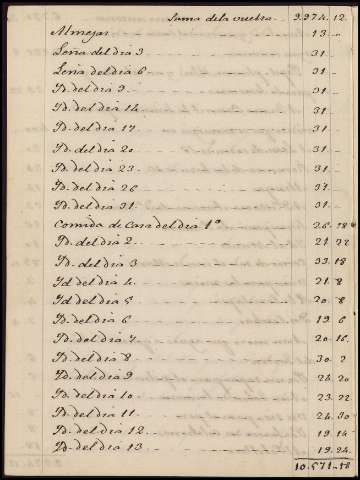 Suma dela vuelta 9.974. 12.
Almejas 13 ..
Leña del dia 3 31 ..
Leña del dia 6 31 ..
Yd. del dia 9 31 ..
Yd. del dia 14 31 ..
Yd. del dia 17 31 ..
Yd. del dia 20 31 ..
Yd. del dia 23 31 ..
Yd. del dia 26 31 ..
Yd. del dia 31 31 ..
Comida de Casa del dia 1º 26. 28
Yd. del dia 2 21. 22
Yd. del dia 3 33. 18
Yd. del dia 4 21. 8
Yd. del dia 5 20. 8
Yd. del dia 6 19. 6
Yd. del dia 7 20. 16.
Yd. del dia 8 30. 2
Yd. del dia 9 26. 20
Yd. del dia 10 23. 22
Yd. del dia 11 24. 30
Yd. del dia 12 19. 14
Yd. del dia 13 19. 24.
10.571. 18